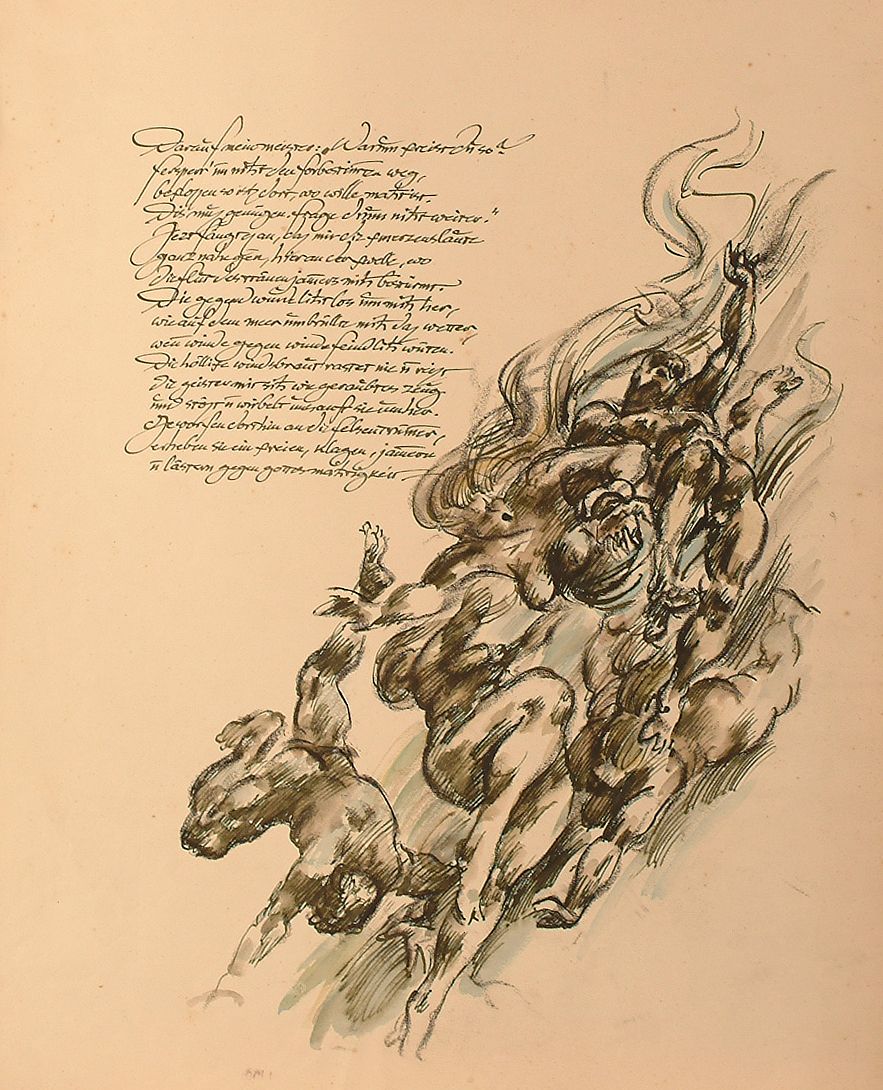 Darauf mein meister: „Warum kreist du so?
versperr' im nicht den vorbestimten weg,
beschlossen so ists dort, wo wille macht ist.
Dis mus genügen, frage drum nicht weiter."
Jezt fängts an, das mir die schmerzenslaute
ganz nahe gehen, hieran der stelle, wo
die flut des tränenjamers mich bestürmt.
Die gegend wurde lichtlos um mich her,
wie auf dem meer umbrüllte mich das wetter,
wen winde gegen winde feindlich wüten.
Die höllische windsbraut rastet nie u reist
die geister mit sich wie geraubtes zeug
und stöst u wirbelt uns auf sie umher.
Geworfen oberhin an die felsentrümer,
erheben sie ein schreien, klagen, jamern
u lästern gegen gottes mächtigkeit